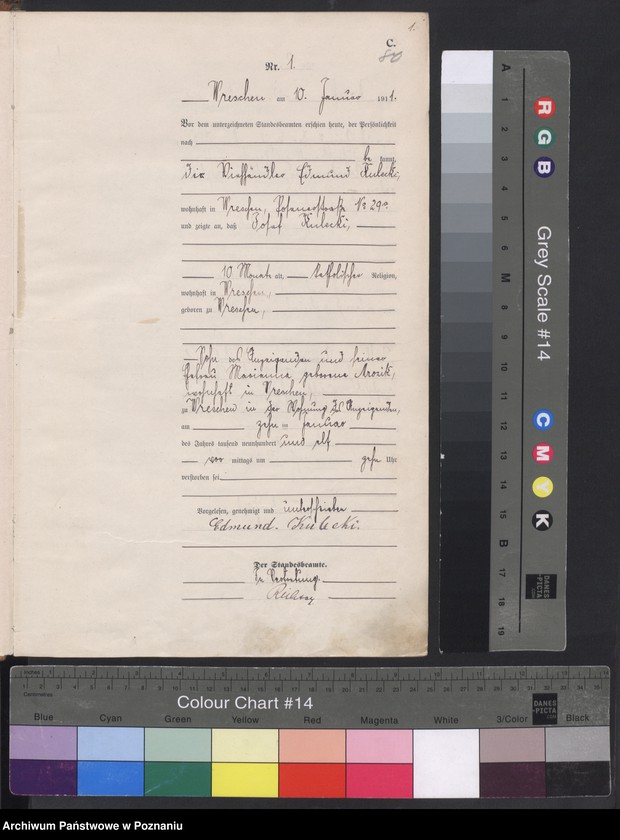 1.
C.
80
Nr. 1.
Wreschen am 10. Januar 1911.
Vor dem unterzeichneten Standesbeamten erschien heute, der Persönlichkeit
nach
be kannt,
der Viehhändler Edmund Kulecki,
wohnhaft in Wreschen, Posenerstraße No 29a
und zeigte an, daß Josef Kulecki,
10 Monate alt, katholischer Religion,
wohnhaft in Wreschen,
geboren zu Wreschen,
Sohn des Anzeigenden und seiner
Ehefrau Marianna geborene
wohnhaft in Wreschen,
zu Wreschen in der Wohnung des Anzeigenden,
am zehn ten Januar
des Jahres tausend neunhundert und elf
vor mittags um zehn Uhr
verstorben sei.
Vorgelesen, genehmigt und unterschrieben
Edmund. Kulecki.
Der Standesbeamte.
In Vertretung.
R
G
B
C
M
Y
K
Grey Scale #14
A
1
2
3
4
5
M
8
9
10
11
12
13
14
15
B
17
18
19
DANES
-PICTA
Colour Chart #14
DANES
-PICTA
Blue Cyan Green Yellow Red Magenta White 3/Color Black
Archiwum Państwowe w Poznaniu